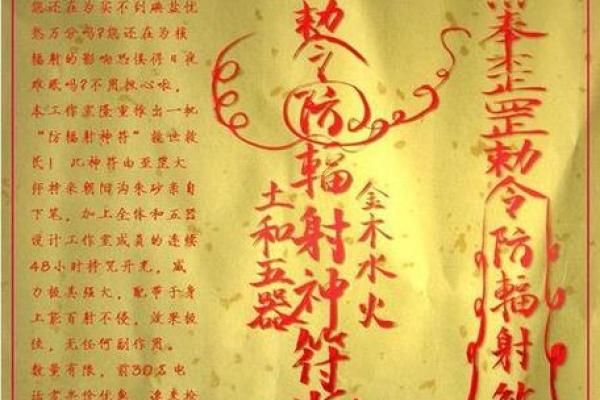 您还在为买不到碘盐忧
愁万分吗?您还在为核
辐射的影响恐惧得日夜
难眠吗?不用担心啦,
本工作室隆重推出一批
“防辐射神符”救世救
民! 此神符由亚堡大
师持来朝阳沟朱砂亲自
下笔, 加上全体和五器
设计工作室成员的连续
48小时持咒开光, 威
力极其强大, 配带于身
上能百射不侵, 效果极
佳, 无任何副作用。
数量有限, 前30名电
敕令防辐射神符
土和五器
金木水火
奉
罡敕令防辐射